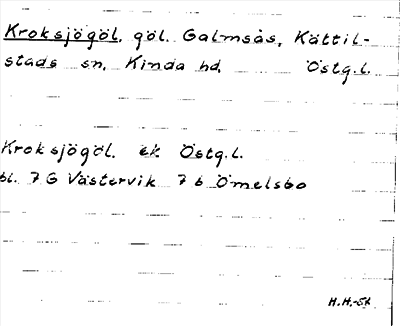 Kroksjögöl. göl. Galmsås, Kättil-
stads sn, Kinda hd, Östg.l.
Kroksjögöl. ek Östg.l.
bl. 7 G Västervik 7 b Ömelsbo
H.H.-St